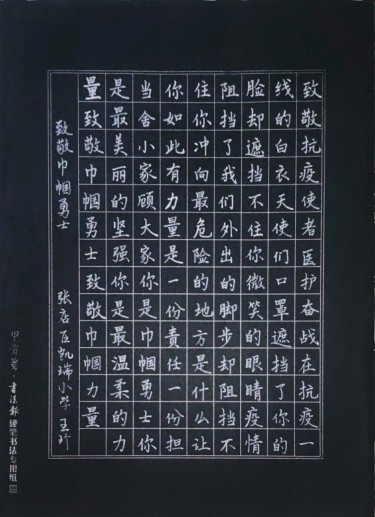 致敬抗疫使者医护奋战在抗疫一
线的白衣天使们口罩遮挡了你的
脸却遮挡不住你微笑的眼睛疫情
阻挡了我们外出的脚步却阻挡不
住你冲向最危险的地方是什么让
你如此有力量是一份责任一份担
当舍小家顾大家你是巾帼勇士你
是最美丽的坚强你是最温柔的力
量致敬巾帼勇士致敬巾帼力量
致敬巾帼勇士 张店区凯瑞小学 王
书法报 硬笔书法专用纸